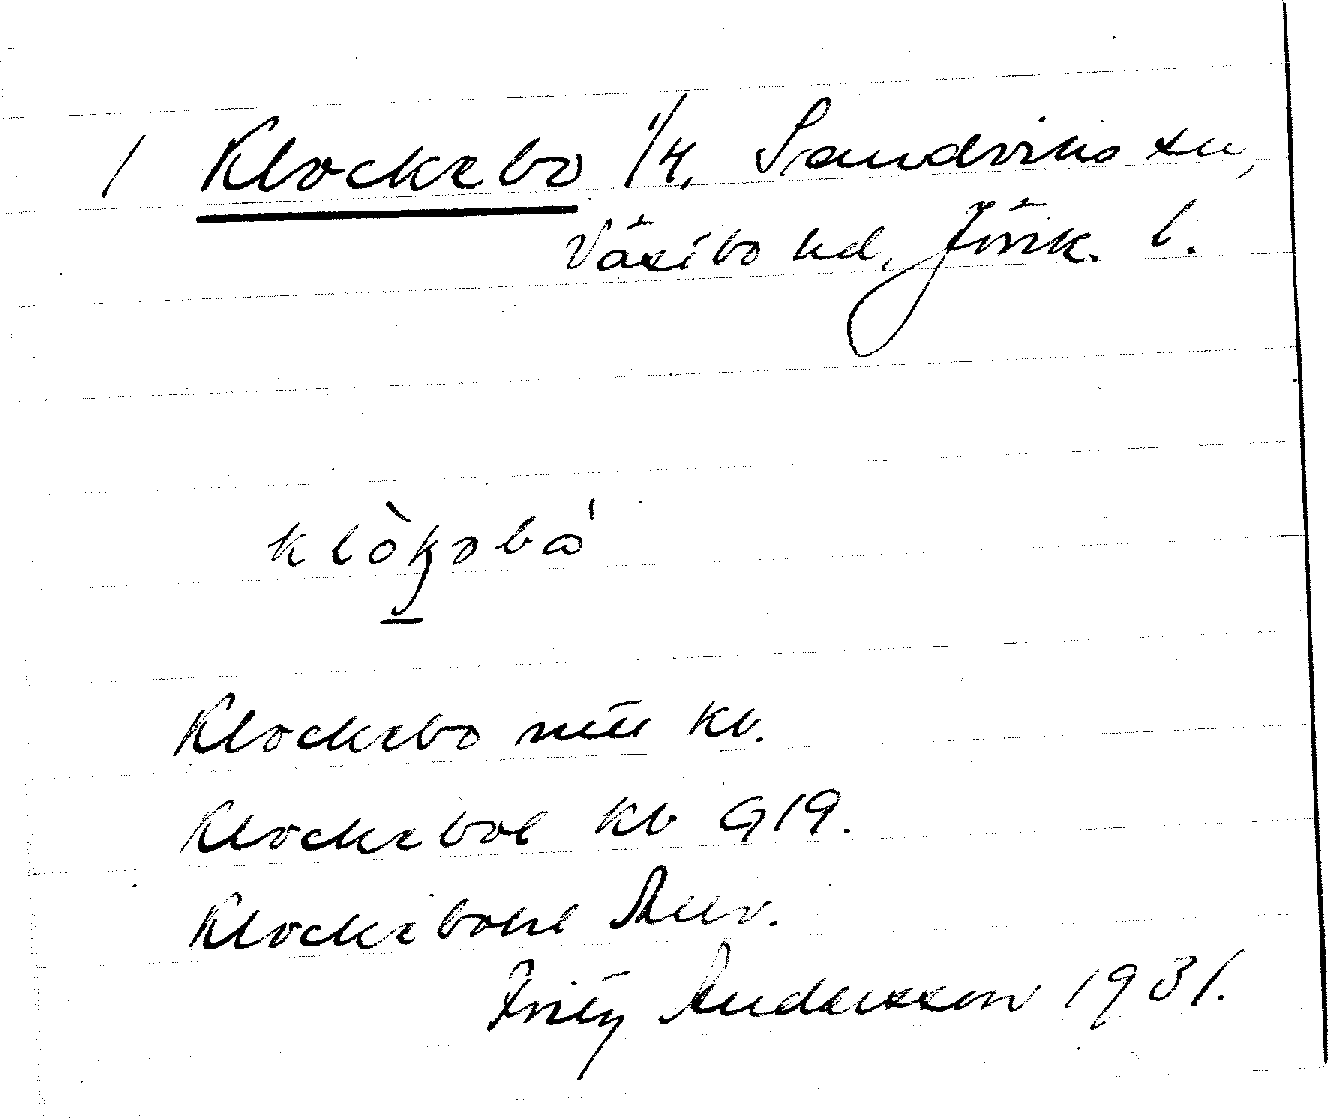 1 Klockebo 1/4, Sandviks sn,
Västbo hd, Jönk. l.
klòkəbó
Klockebo mtl kb.
Klockebol Kb 919.
Klockebohl
Fritz Andersson 1931.